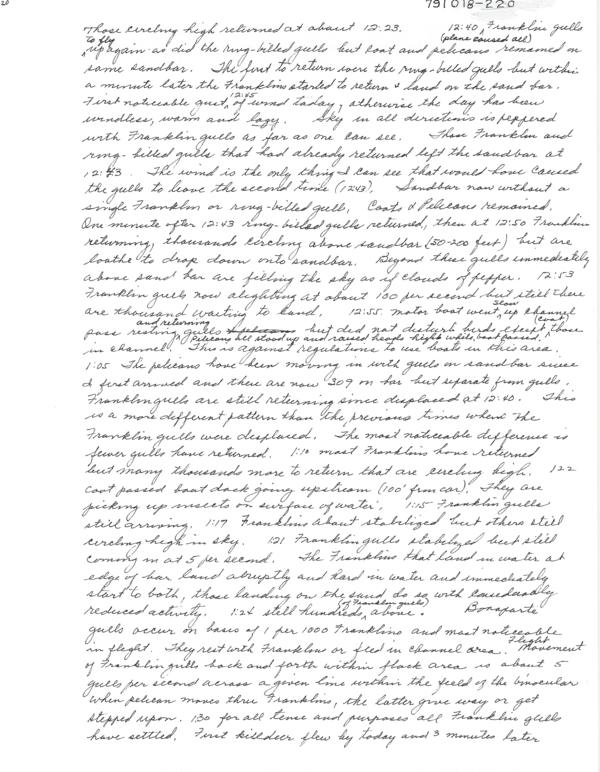 20
791018-220
Those circling high returned at about 12:23. 12:40 Franklin gulls
to fly (plane caused all)
up again as did the ring-billed gulls but coot and pelicans remained on
same sandbar. The first to return were the ring-billed gulls but within
a minute later the Franklins started to return & land on the sand bar.
First noticeable gust, 12:45 of wind today, otherwise the day has been
windless, warm and lazy. Sky in all directions is peppered
with Franklin gulls as far as one can see. Those Franklin and
ring-billed gulls that had already returned left the sandbar at
12:43. The wind is the only thing I can see that would have caused
the gulls to leave the second time (1243). Sandbar now without a
single Franklin or ring-billed gull, Coots & Pelicans remained.
One minute after 12:43 ring-billed gulls returned, then at 12:50 Franklins
returning, thousands circling above sandbar (50-200 feet) but are
loathe to drop down onto sandbar. Beyond these gulls immediately
above sand bar are filling the sky as if clouds of pepper. 12:53
Franklin gulls now alighting at about 100 per second but still there
are thousand waiting to land. 12:55 motor boat went slow up channel
and returning (coot)
pass resting gulls but did not disturb birds except those
in channel. Pelicans all stood up and raised heads high while boat passed. This is against regulations to use boats in this area.
1:05 The pelicans have been moving in with gulls on sandbar since
I first arrived and there are now 309 on bar but separate from gulls.
Franklin gulls are still returning since displaced at 12:40. This
is a more different pattern than the previous times where the
Franklin gulls were displaced. The most noticeable difference is
fewer gulls have returned. 1:10 most Franklins have returned
but many thousands more to return that are circling high. 122
coot passed boat dock going upstream (100' from car). They are
picking up insects on surface of water. 1:15 Franklin gulls
still arriving. 1:17 Franklins about stabilized but others still
circling high in sky. 1:21 Franklin gulls stabilized but still
coming in at 5 per second. The Franklins that land in water at
edge of bar land abruptly and hard in water and immediately
start to bath, those landing on the sand do so with considerably
reduced activity. 1:24 still hundreds (of Franklin gulls) above. Bonaparte
gulls occur on basis of 1 per 1000 Franklins and most noticeable
in flight. They rest with Franklins or feed in channel area. Flight Movement
of Franklin gulls back and forth within flock area is about 5
gulls per second across a given line within the field of the binocular
When pelican moves thru Franklins, the latter give way or get
stepped upon. 1:30 for all tense and purposes all Franklin gulls
have settled. First killdeer flew by today and 3 minutes later